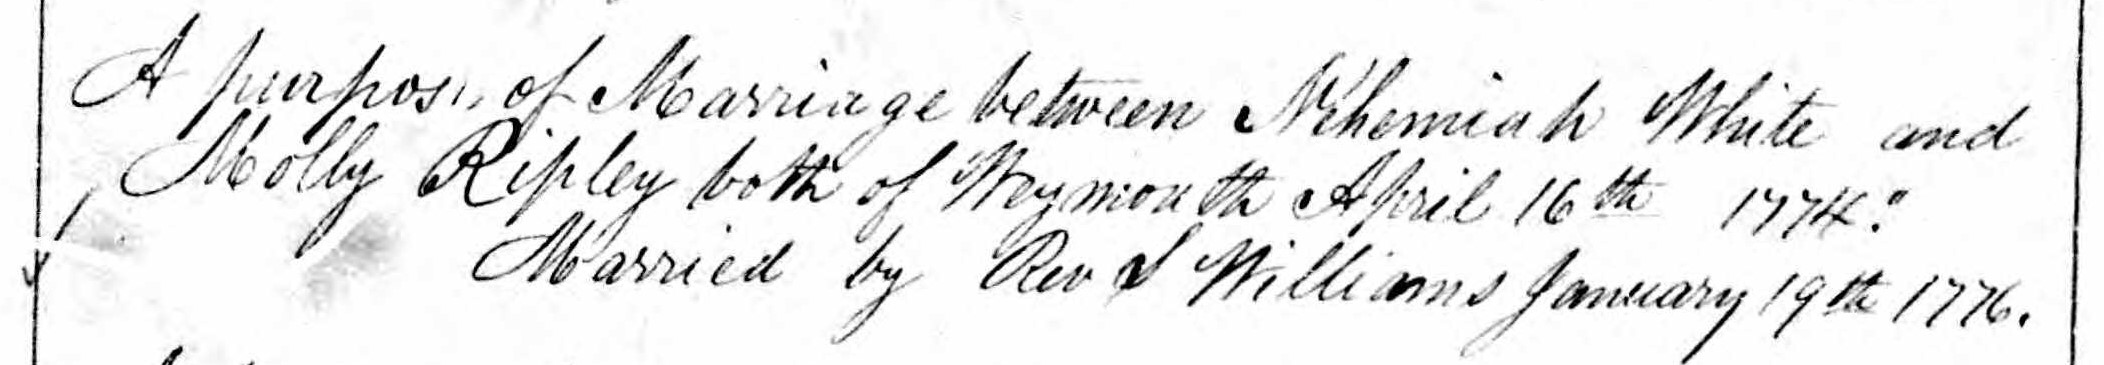 A purpose of Marriage between Nehemiah White and
Molly Ripley both of Weymouth April 16th 1774.
Married by Rev S Williams January 19th 1776.